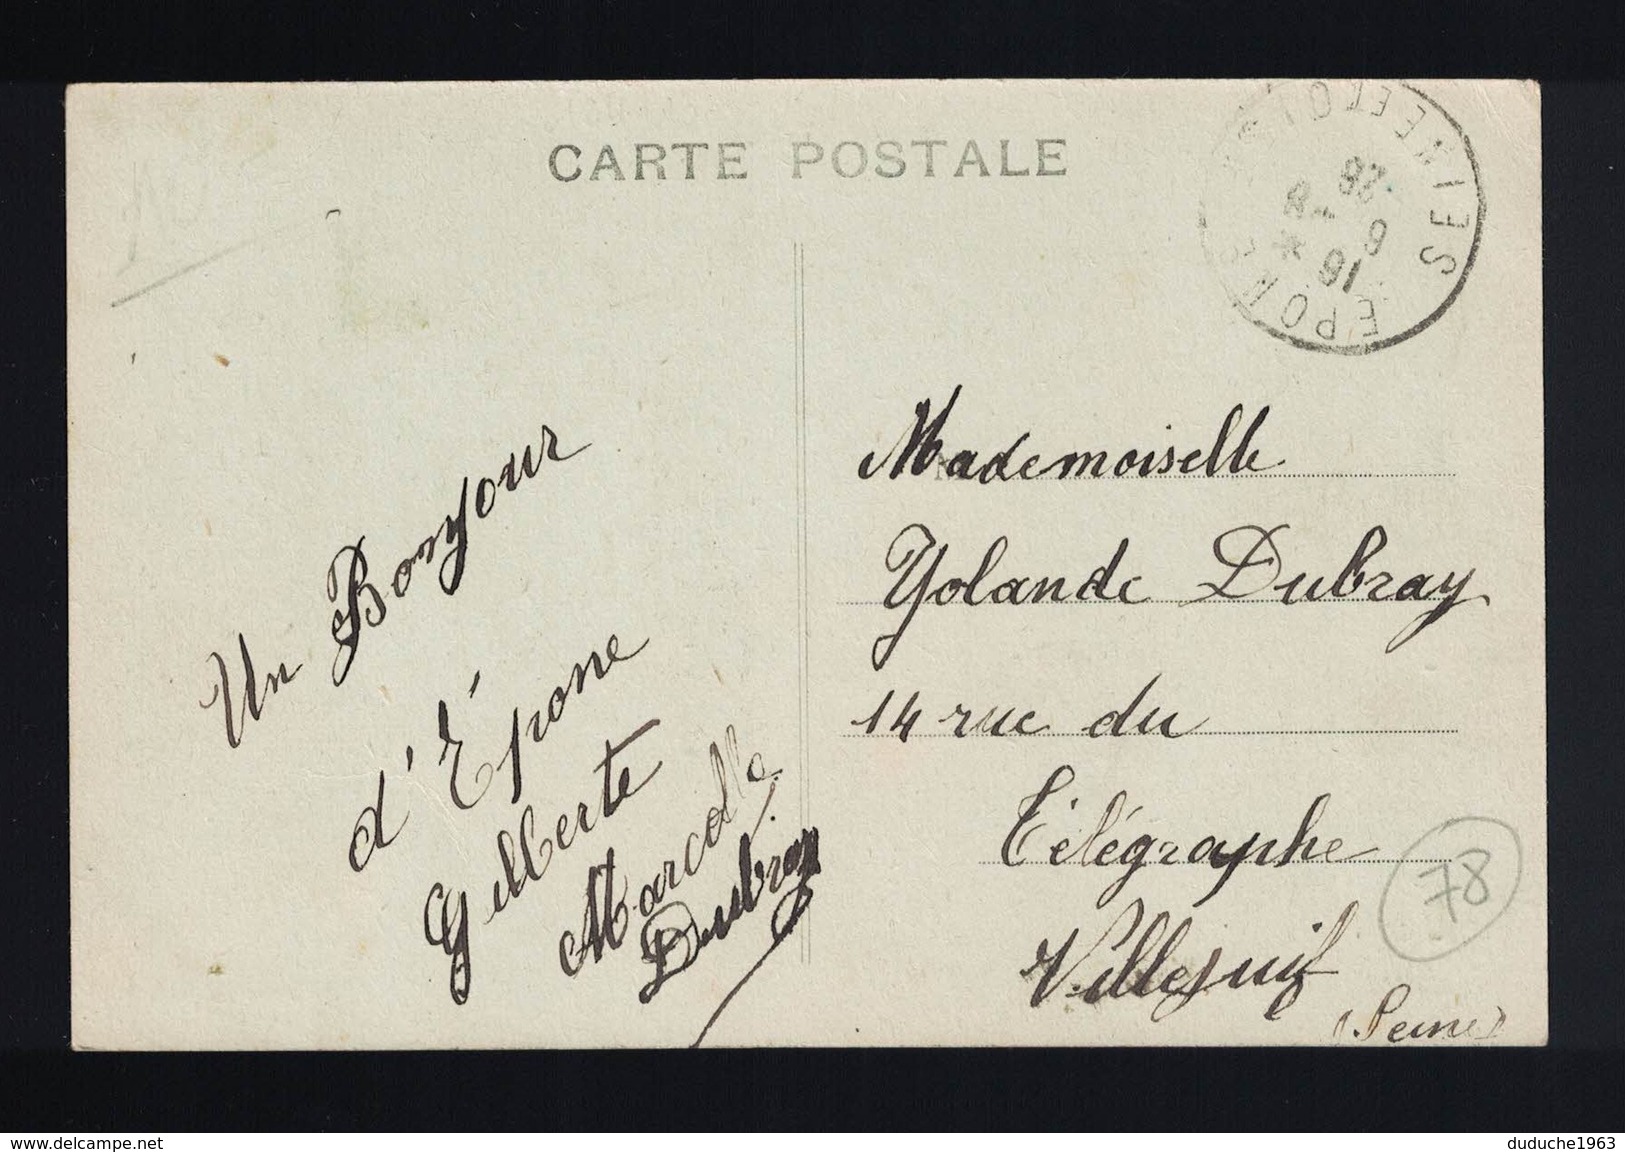 CARTE POSTALE
EPONE SEINE ET OISE
16 *
9 -8
28
Un Bonjour
d'Épone
Gilberte
Marcelle
Dubray
Mademoiselle
Yolande Dubray
14 rue du
Télégraphe
Villejuif
(Seine)
78
www.delcampe.net
duduche1963